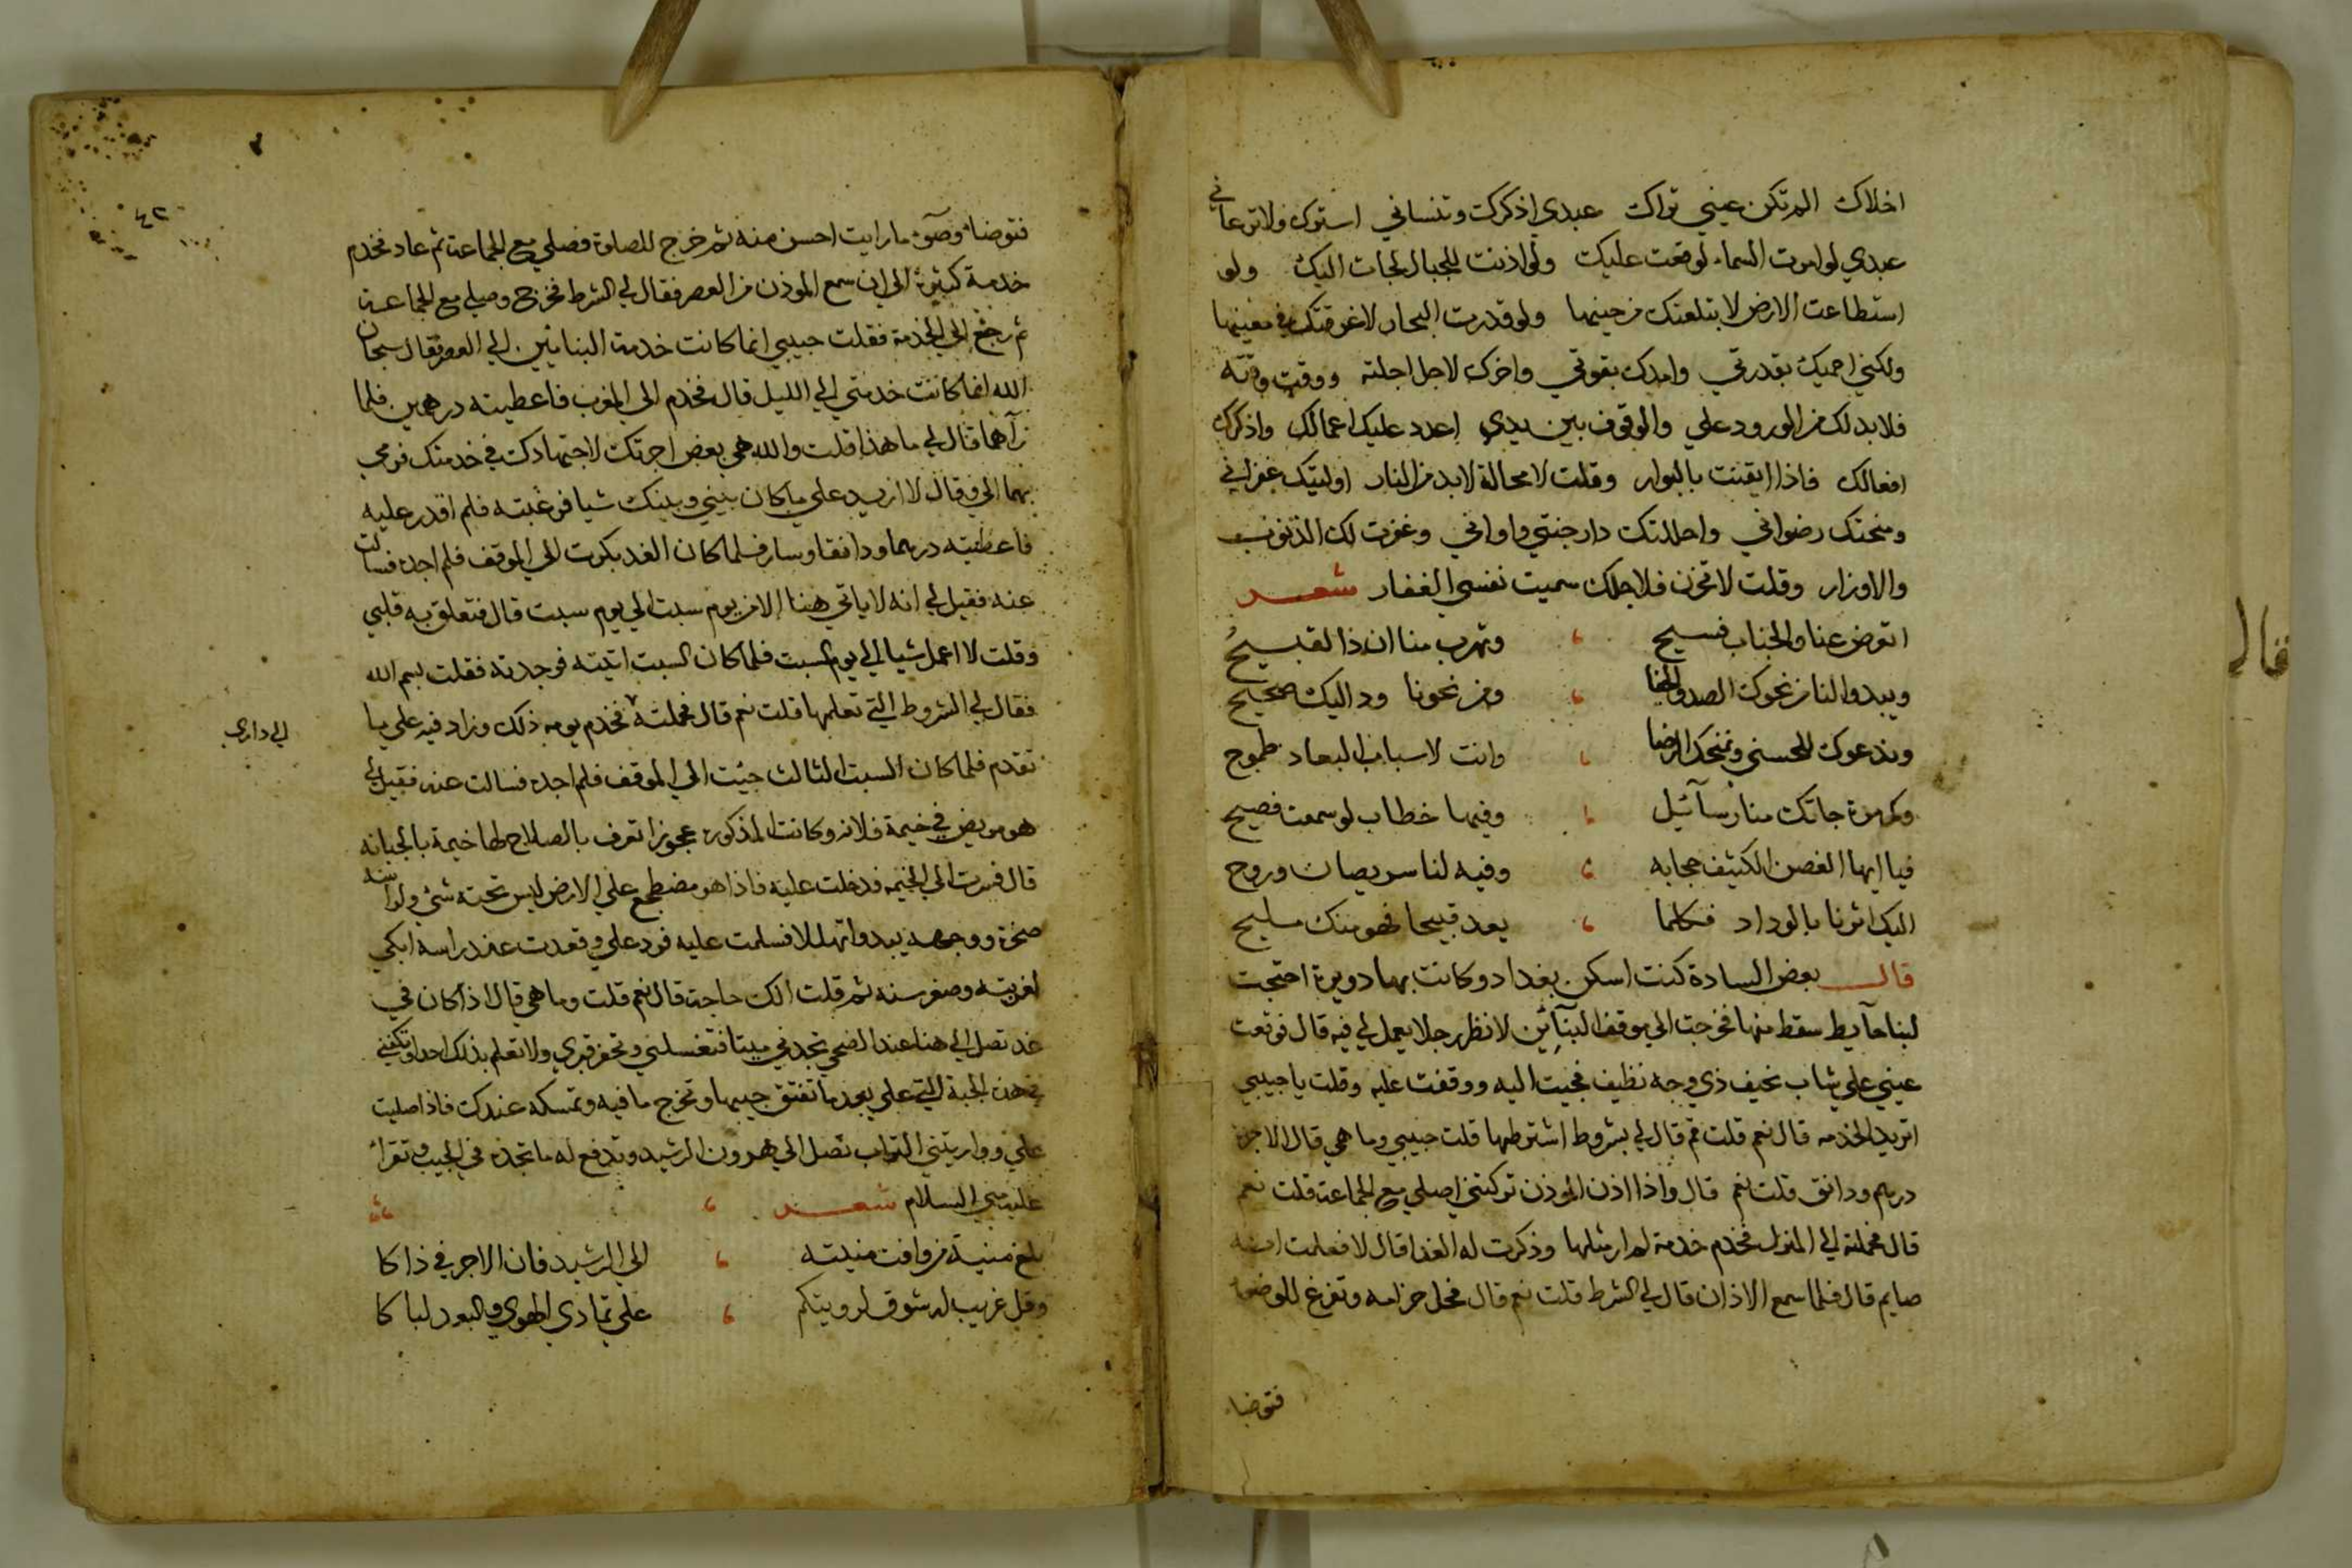 اخلاك الم تكن عيني تراك عبدي اذكرك وتنساني استرك ولا ترعاني
عبدي لو امرت السماء لوقعت عليك ولو اذنت للجبال لجات اليك ولو
استطاعت الارض لابتلعتك من حينها ولو قدرت البحار لاغرقتك في معينها
ولكني احميك بقدرتي وامدك بقوتي واخرك لاجل اجلته ووقت وقته
فلا بد لك من الورود علي والوقوف بين يدي اعدد عليك اعمالك واذكرك
افعالك فاذا ايقنت بالبوار وقلت لا محالة لا بد من النار اوليتك غفراني
ومنحتك رضواني واحللتك دار جنتي واواني وغفرت لك الذنوب
والاوزار وقلت لا تحزن فلاجلك سميت نفسي الغفار شعر
اتعرض عنا والجناب فسيح وتهرب منا ان ذا لقبيح
ويبدوا لنا من نحوك الصد والجفا ومن نحونا ود اليك صحيح
وندعوك للحسنى ونمنحك الرضا وانت لاسباب البعاد طموح
وكم مرة جاتك منا رسآئيل وفيها خطاب لو سمعت فصيح
فيا ايها الغصن الكثيف حجابه وفيه لنا سر يصان وروح
اليك اشرنا بالوداد فكلما يعد قبيحا فهو منك مليح
قال بعض السادة كنت اسكن بغداد وكانت بها دويرة احتجت
لبنا حآيط سقط منها فخرجت الي موقف البنآئين لانظر رجلا يعمل لي فيه قال فوقعت
عيني علي شاب نحيف ذي وجه نظيف فجيت اليه ووقفت عليه وقلت يا حبيبي
اتريد الخدمه قال نعم قلت قم قال لي بشروط اشترطها قلت حبيبي وما هي قال الاجرة
درهم ودانق قلت نعم قال واذا اذن الموذن تركتني اصلي مع الجماعة قلت نعم
قال فحملته الي المنزل فخدم خدمة لم ار مثلها وذكرت له الغدا قال لا فعلمت انه
صايم قال فلما سمع الاذان قال لي الشرط قلت نعم قال فحل حزامه وتفرغ للوضوء
فتوضا
قال
٤٢
فتوضا وضوء ما رايت احسن منه ثم خرج للصلوة فصلي مع الجماعة ثم عاد فخدم
خدمة كثيرة الي ان سمع الموذن من العصر فقال لي الشرط فخرج وصلي مع الجماعة
ثم رجع الي الخدمة فقلت حبيبي انما كانت خدمة البنايين الي العصر فقال سبحان
الله انما كانت خدمتي الي الليل قال فخدم الي المغرب فاعطيته درهمين فلما
رآهما قال لي ما هذا قلت والله هي بعض اجرتك لاجتهادك في خدمتك فرمي
بهما الي وقال لا ازيد علي ما كان بيني وبينك شيا فرغبته فلم اقدر عليه
فاعطيته درهما ودانقا وسار فلما كان الغد بكرت الي الموقف فلم اجده فسالت
عنه فقيل لي انه لا ياتي هنا الا من يوم سبت الي يوم سبت قال فتعلق به قلبي
وقلت لا اعمل شيا الي يوم السبت فلما كان السبت اتيته فوجدته فقلت بسم الله
فقال لي الشروط التي تعلمها قلت نعم قال فحملته فخدم يومه ذلك وزاد فيه علي ما
الي داري
تقدم فلما كان السبت الثالث جيت الي الموقف فلم اجده فسالت عنه فقيل لي
هو مريض في خيمة فلانه وكانت المذكوره عجوزا تعرف بالصلاح لها خيمة بالجبانه
قال فسرت الي الخيمه فدخلت عليه فاذا هو مضطجع علي الارض ليس تحته شي ولراسه
صخرة ووجهه يبدوا تهللا فسلمت عليه فرد علي وقعدت عند راسه ابكي
لغربته وصغر سنه ثم قلت الك حاجة قال نعم قلت وما هي قال اذا كان في
غد تصل الي هنا عند الضحي تجدني ميتا فتغسلني وتحفر قبري ولا تعلم بذلك احدا وتكفني
في هذه الجبة التي علي بعد ما تفتق جيبها وتخرج ما فيه وتمسكه عندك فاذا صليت
علي وواريتني التراب تصل الي هرون الرشيد وتدفع له ما تجده في الجيب وتقرا
عليه مني السلام شعر
بلغ منية من وافت منيته الي الرشيد فان الاجر في ذاكا
وقل غريب له شوق لرويتكم علي تمادي الهوي والبعد لباكا